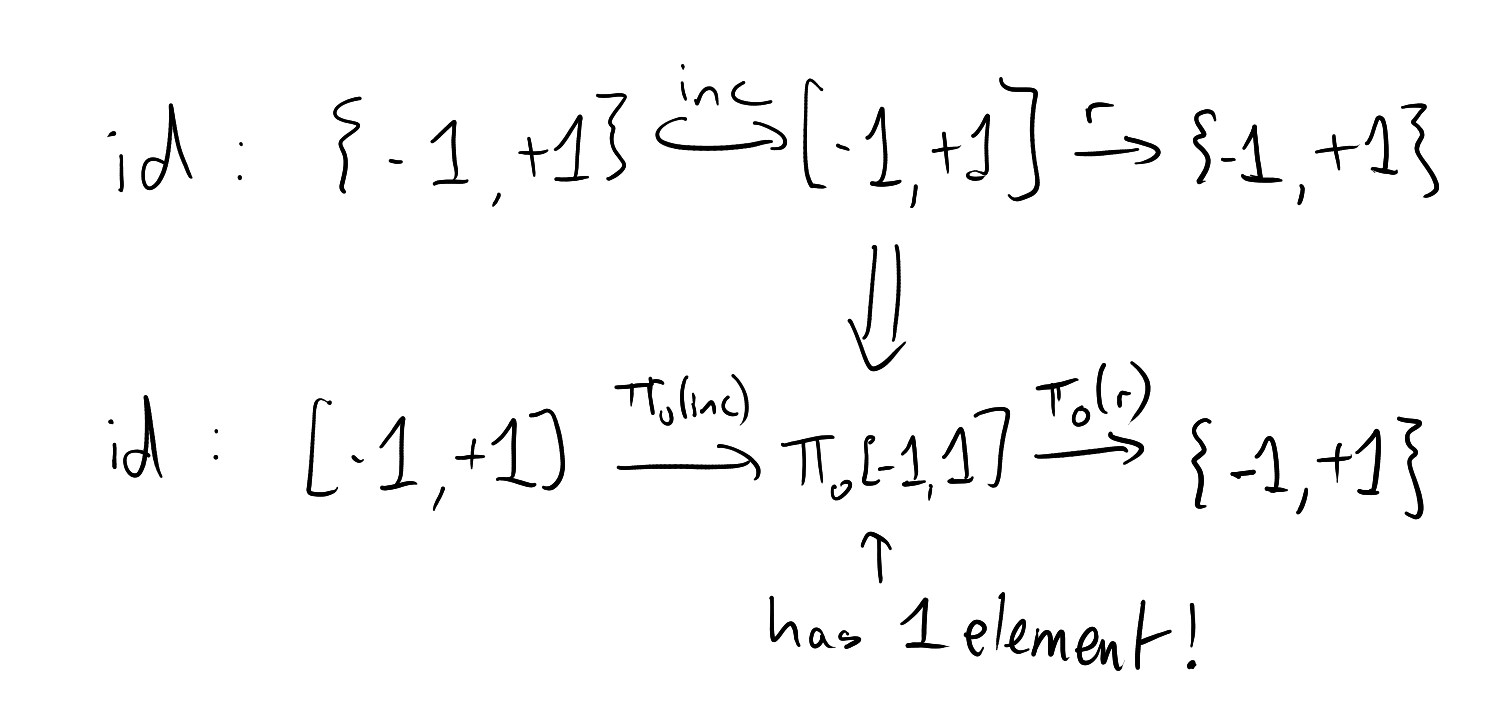 id : {-1, +1} inc ↪ [-1, +1] r → {-1, +1}
⇓
id : [-1, +1] π₀(inc) → π₀[-1, 1] π₀(r) → {-1, +1}
↑
has 1 element!